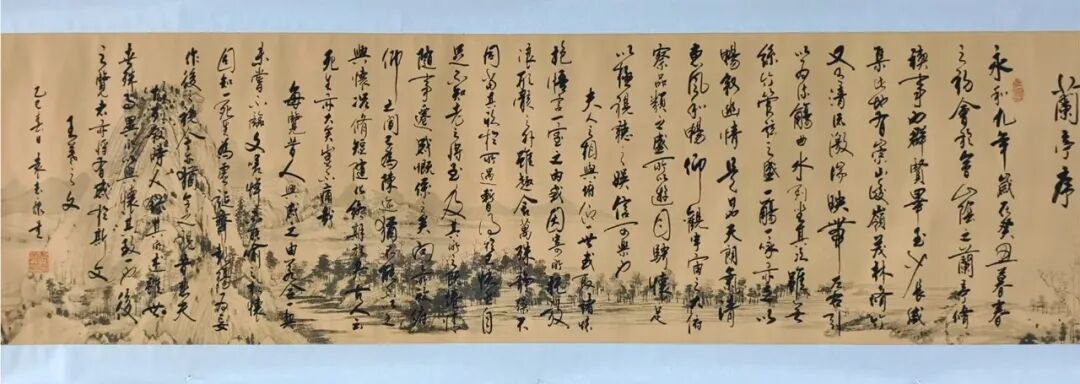 蘭亭序
永和九年歲在癸丑暮春
之初會於會山陰之蘭亭脩
禊事也群賢畢至少長咸
集此地有崇山峻嶺茂林脩竹
又有清流激湍映帶左右引
以為流觴曲水列坐其次雖無
絲竹管弦之盛一觴一詠亦足以
暢敘幽情是日也天朗氣清
惠風和暢仰觀宇宙之大俯
察品類之盛所以遊目騁懷足
以極視聽之娛信可樂也
夫人之相與俯仰一世或取諸懷
抱悟言一室之內或因寄所託放
浪形骸之外雖趣舍萬殊靜躁不
同當其欣於所遇暫得於己快然自
足不知老之將至及其所之既倦情
隨事遷感慨係之矣向之所欣俛
仰之間已為陳迹猶不能不以之
興懷況脩短隨化終期於盡古人云
死生亦大矣豈不痛哉
每覽昔人興感之由若合一契
未嘗不臨文嗟悼不能喻之於懷
固知一死生為虛誕齊彭殤為妄
作後之視今亦猶今之視昔悲夫
故列敘時人錄其所述雖
世殊事異所以興懷其致一也後
之覽者亦將有感於斯文
王羲之文
乙巳春日 袁志書